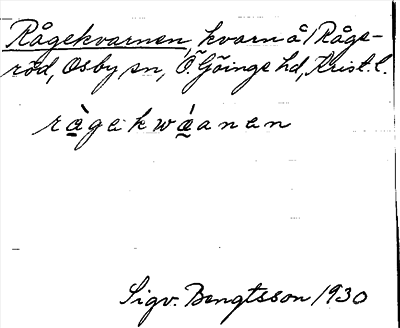 Rågekvarnen, kvarn å 1 Råge-
röd, Osby sn, Ö. Göinge hd, Krist. l.
ràge kwánan
Sigv. Bengtsson 1930